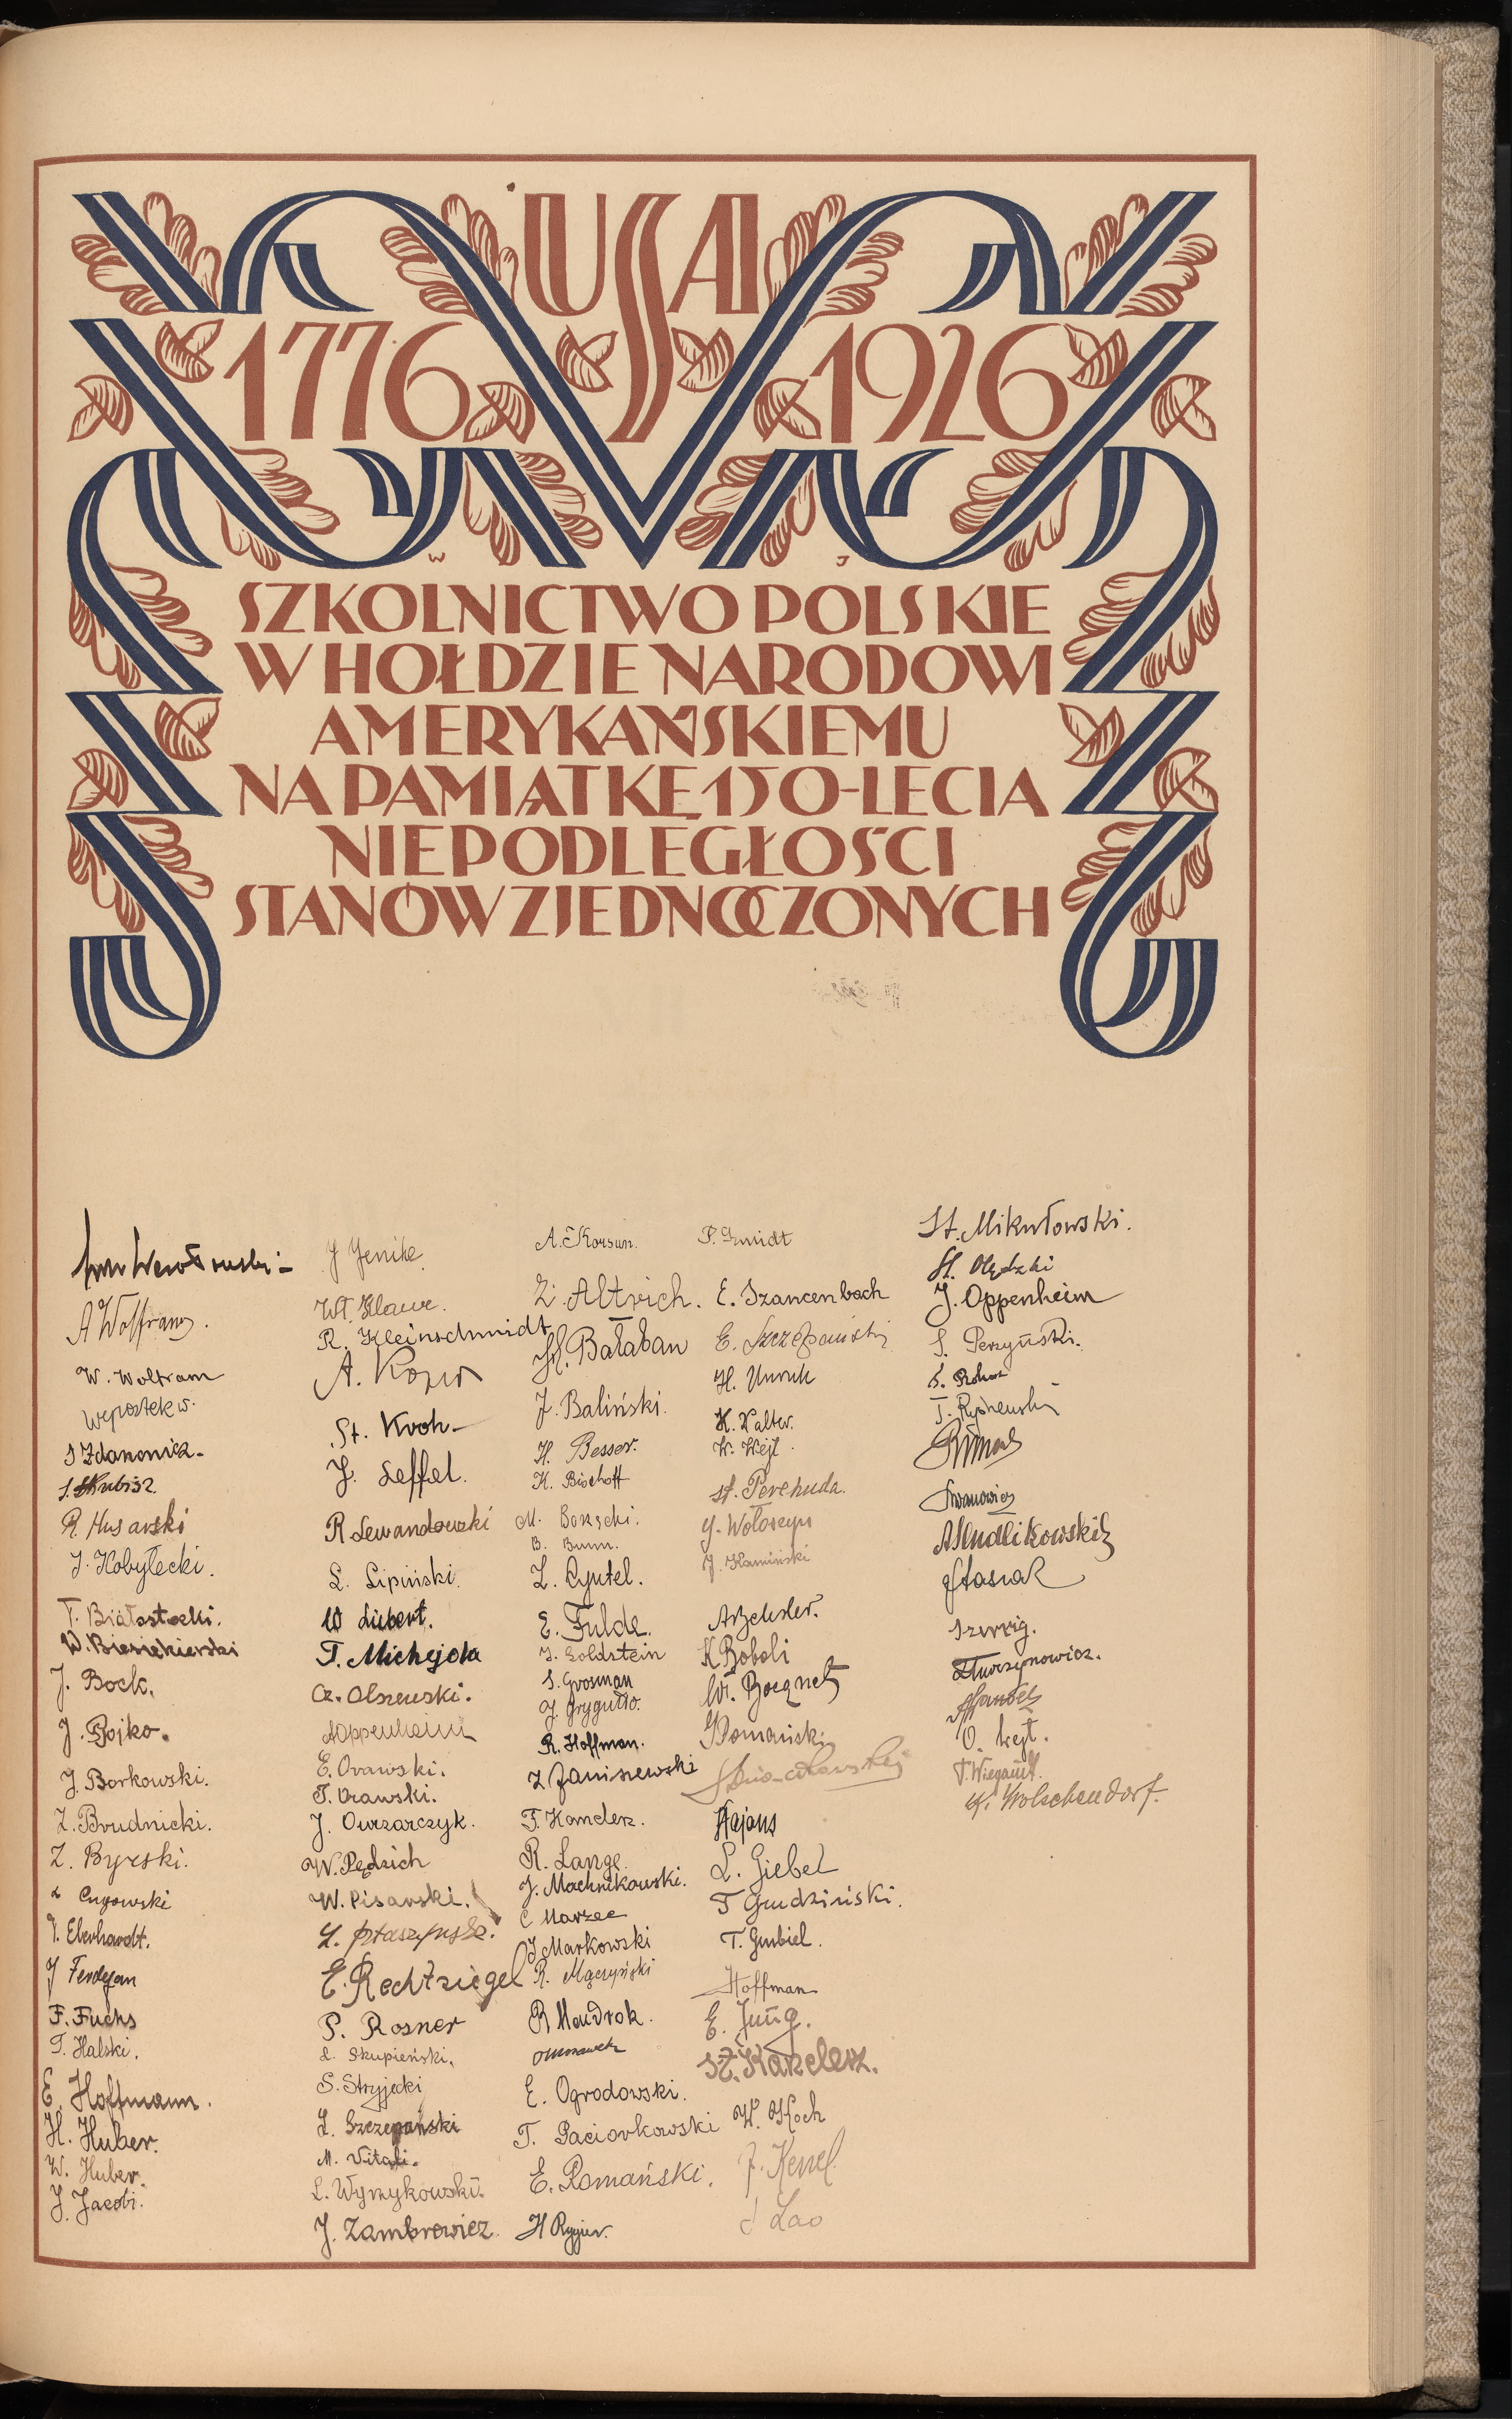 USA
1776 1926
W J
SZKOLNICTWO POLSKIE
W HOŁDZIE NARODOWI
AMERYKAŃSKIEMU
NA PAMIĄTKĘ 150-LECIA
NIEPODLEGŁOŚCI
STANÓW ZJEDNOCZONYCH
A Wolfram.
W. Woltram
S Zdanowicz.
S. Skubisz
R. Husarski
J. Kobyłecki.
T. Białostocki.
W. Biesiekierski
J. Bock.
J. Bojko.
J. Borkowski.
Z. Brudnicki.
Z. Byrski.
Cugowski
T. Eberhardt.
J Ferdejan
F. Fuchs
T. Halski.
E. Hoffmann.
H. Huber.
W. Huber.
J. Jacobi.
J Jenike
Wł. Klawe.
R. Kleinschmidt
St. Kroh
J. Leffel.
R Lewandowski
L. Lipiński.
W Liebert.
T. Michejda
Cz. Olszewski.
A Oppenheim
E. Orawski.
T. Orawski.
J. Owczarczyk.
W. Pędzich
W. Pisarski.
E. Rechtsiegel
P. Rosner
L. Skupieński.
S. Stryjecki
L. Szczepański
M. Vitali.
L. Wyrzykowski.
J. Zambrowicz.
A. Korsun.
Z. Altrich.
M. Bałaban
J. Baliński.
H. Besser.
K. Bischoff
M. Borscki.
B. Bumm.
Z. Cyutel.
E. Fulde.
J. Goldstein
S. Grosman
J. Gryguć
R. Hoffman.
Z Janiszewski
F. Kanderz.
R. Lange
J. Machnikowski.
C Marzec
J Markowski
R. Mączyński
R Maudrok.
E. Ogrodowski.
T. Paciorkowski
E. Romański.
H Ryyier.
P. Szmidt
E. Szancenbach
E. Szczepański
H. Unruh
K. Walter.
W. Wejt.
St. Perehuda.
J. Wołoszyn
J. Kamiński
K Boboli
Wł. Bocquet
Domański
Hajans
L. Giebel
T Gudziński.
T. Gurbiel.
Hoffman
E. Jung.
St. Kanclerz.
W. Koch
J. Kenel
J Lao
St. Mikułowski.
St. Olędzki
J. Oppenheim
S. Perzyński.
Iwanowicz
Stasiak
Szwejg.
O. Wejt.
T. Wiegandt.
K. Wolschendorf.